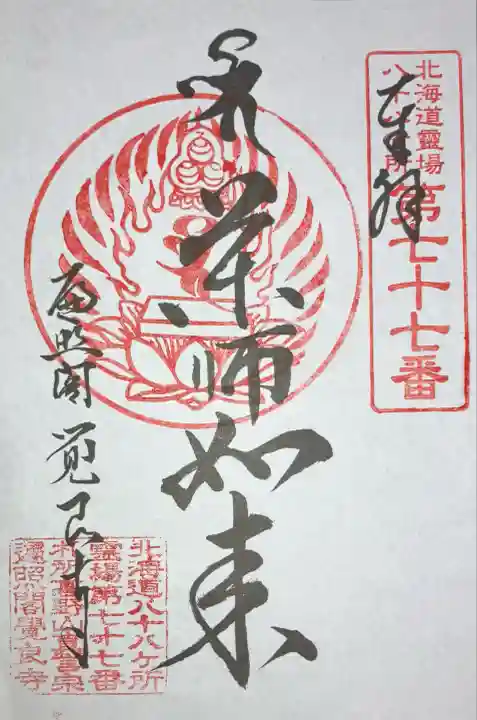 奉拝
北海道霊場
八十八ヶ所
第七十七番
薬師如来
遍照閣 覚良寺
北海道八十八ヶ所
霊場第七十七番
札所高野山真言宗
遍照閣覺良寺